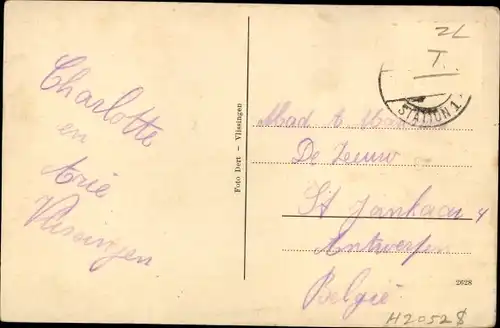 Charlotte
en
Arie
Vlissingen
Foto Dert - Vlissingen
ZL
T
STATION 1
Mad
De Zeeuw
St
Antwerpen
België
2628
H20528